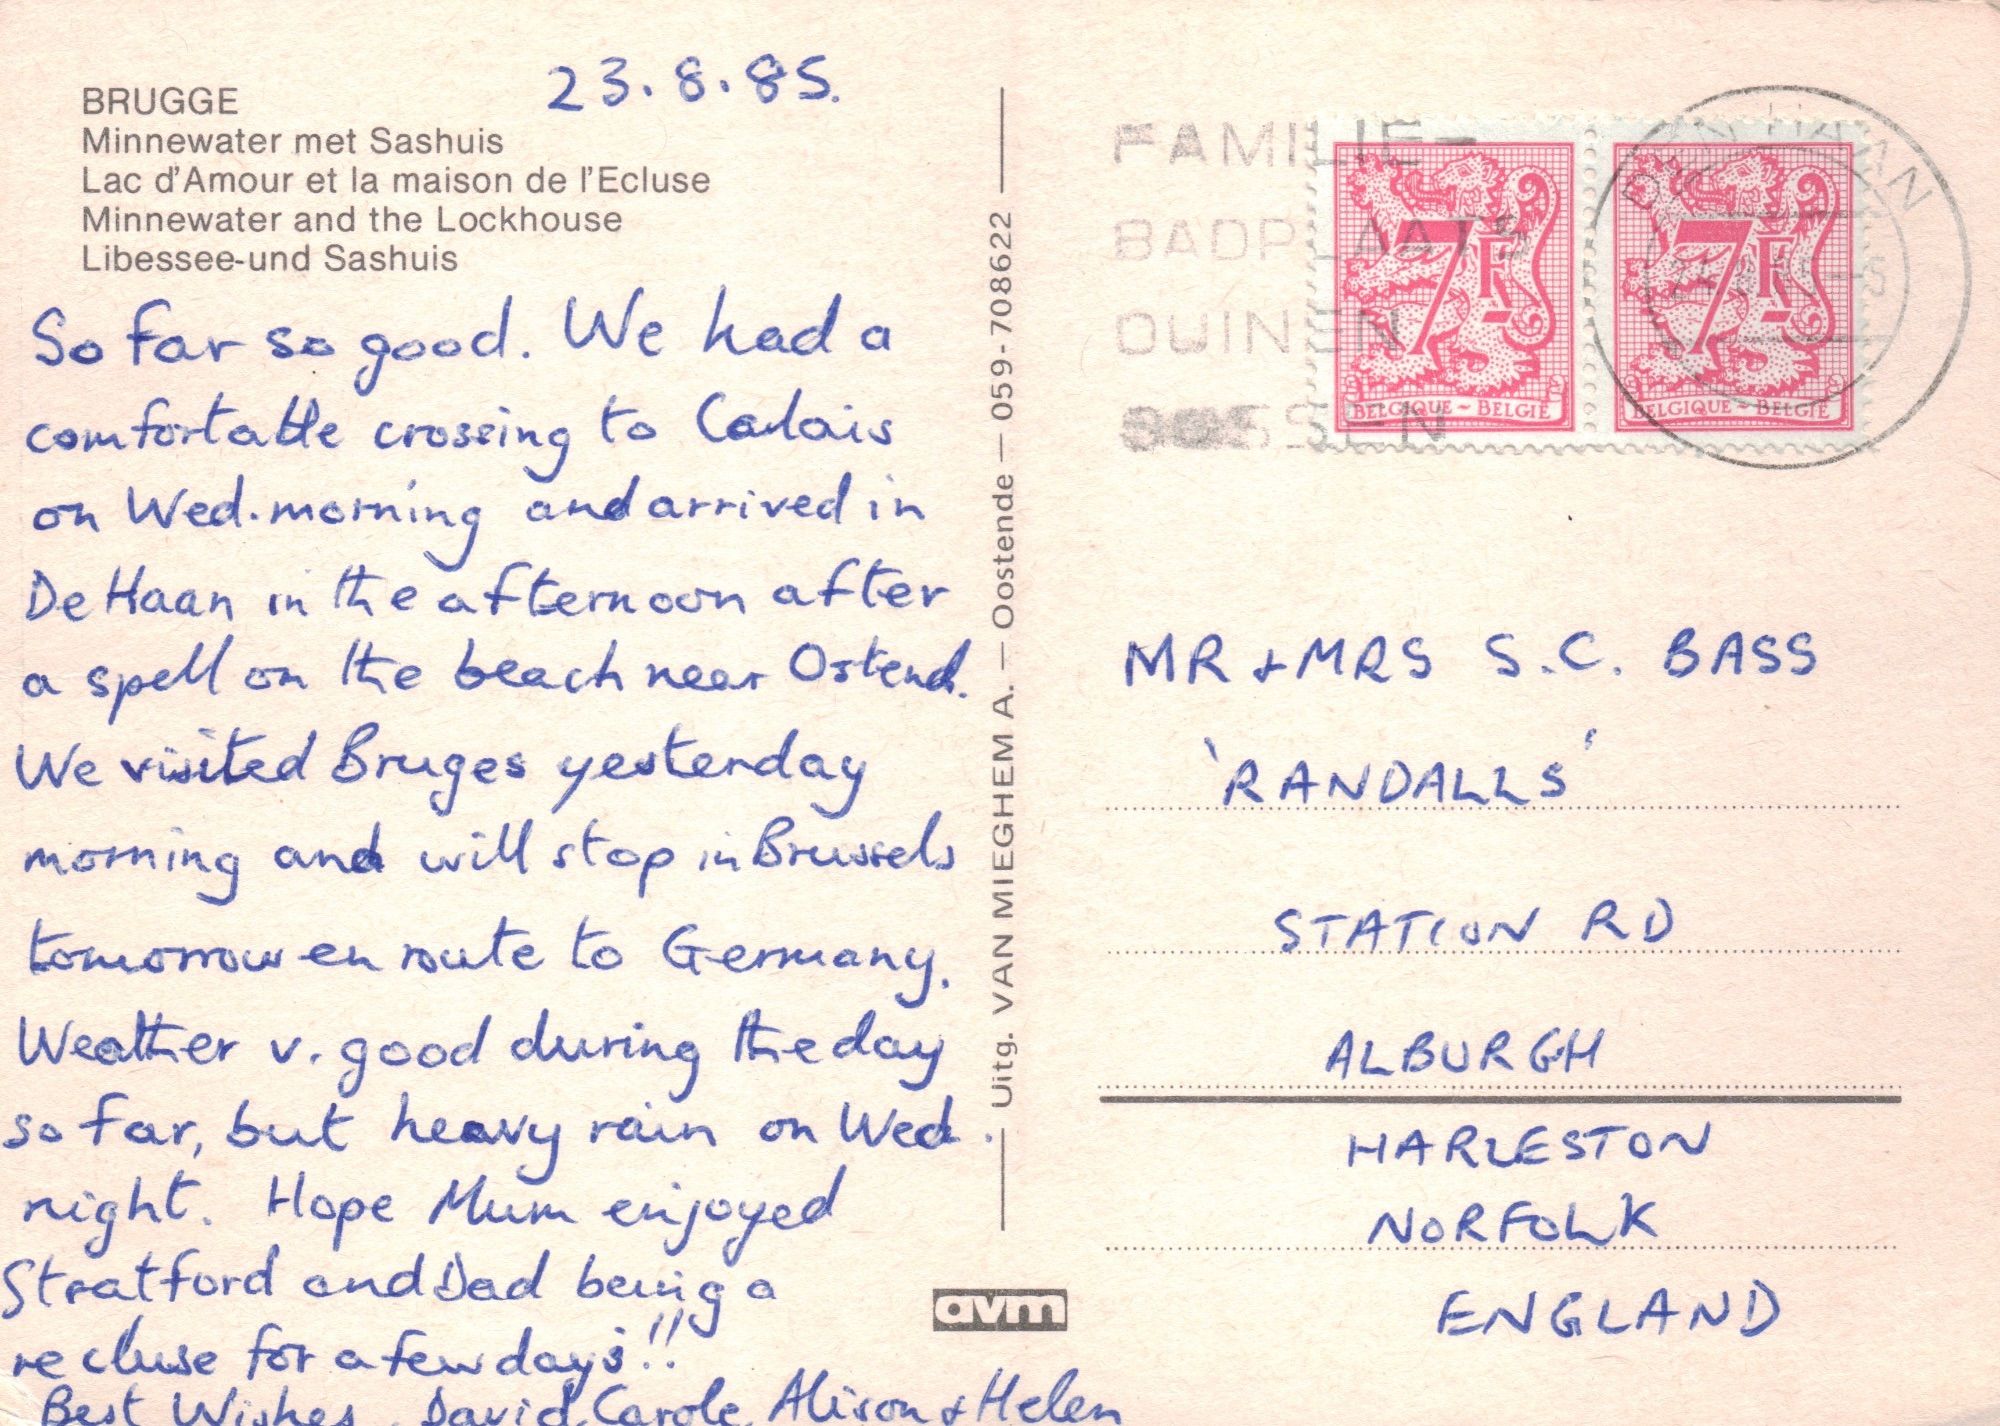 23.8.85.
BRUGGE
Minnewater met Sashuis
Lac d'Amour et la maison de l'Ecluse
Minnewater and the Lockhouse
Libessee-und Sashuis
So far so good. We had a
comfortable crossing to Calais
on Wed. morning and arrived in
De Haan in the afternoon after
a spell on the beach near Ostend.
We visited Bruges yesterday
morning and will stop in Brussels
tomorrow en route to Germany.
Weather v. good during the day
so far, but heavy rain on Wed.
night. Hope Mum enjoyed
Stratford and Dad being a
recluse for a few days!!
Best Wishes, David, Carole, Alison & Helen
Uitg. VAN MIEGHEM A. — Oostende — 059-708622
avm
FAMILIE-
BADPLAATS
DUINEN
BOSSEN
DE HAAN
7F
BELGIQUE - BELGIË
7F
BELGIQUE - BELGIË
MR & MRS S.C. BASS
'RANDALLS'
STATION RD
ALBURGH
HARLESTON
NORFOLK
ENGLAND